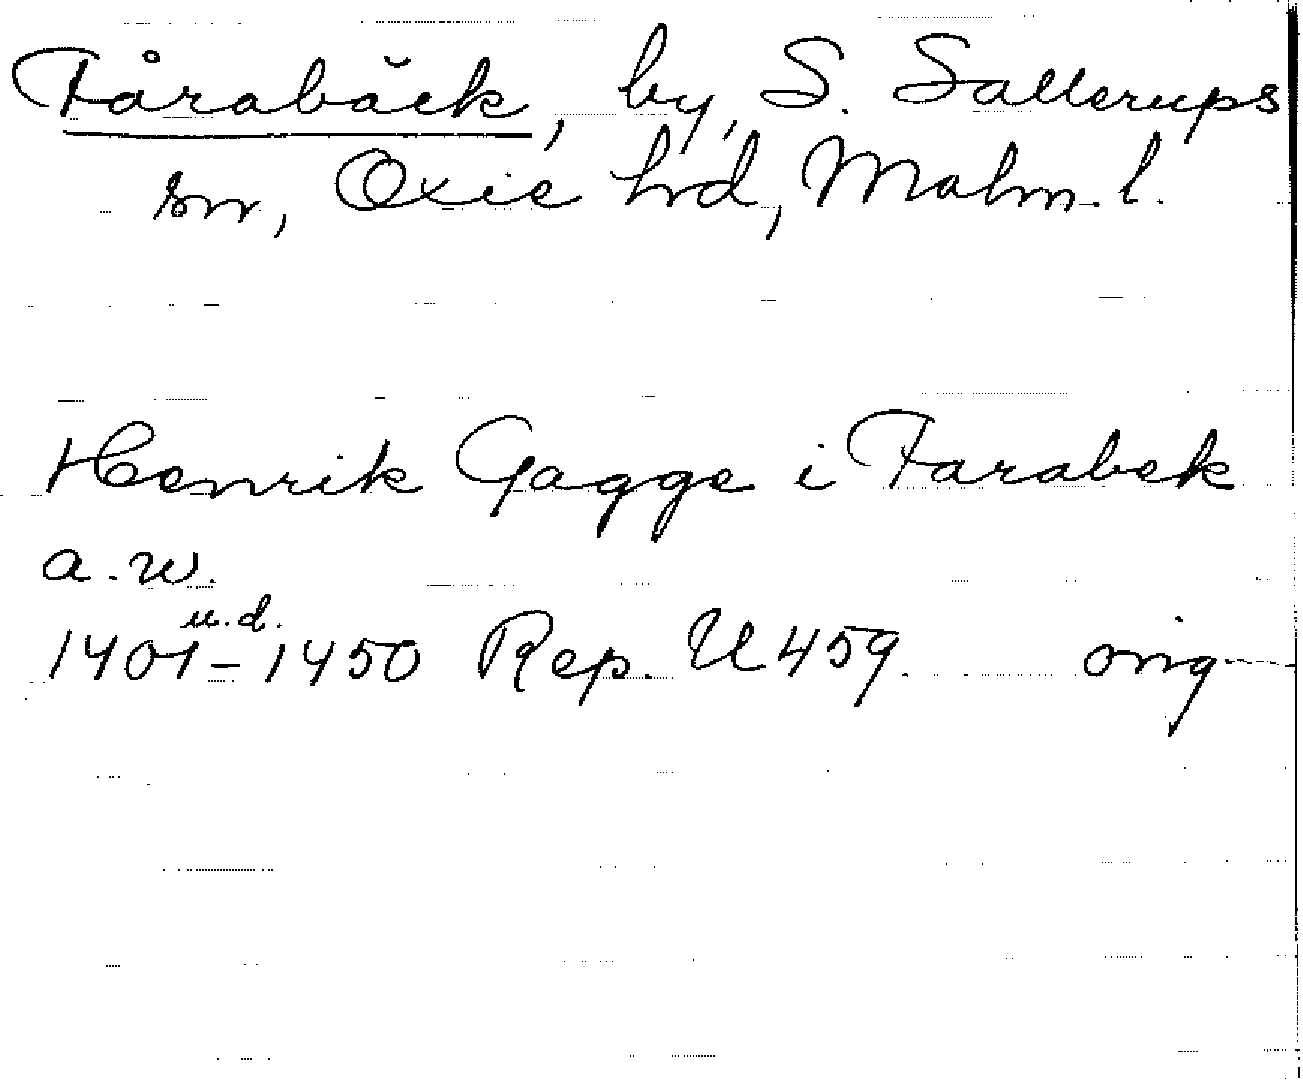 Fårabäck, by, S. Sallerups
sn, Oxie hrd, Malm. l.
Henrik Gagge i Farabek
a.w.
u.d.
1401-1450 Rep. U 459. orig